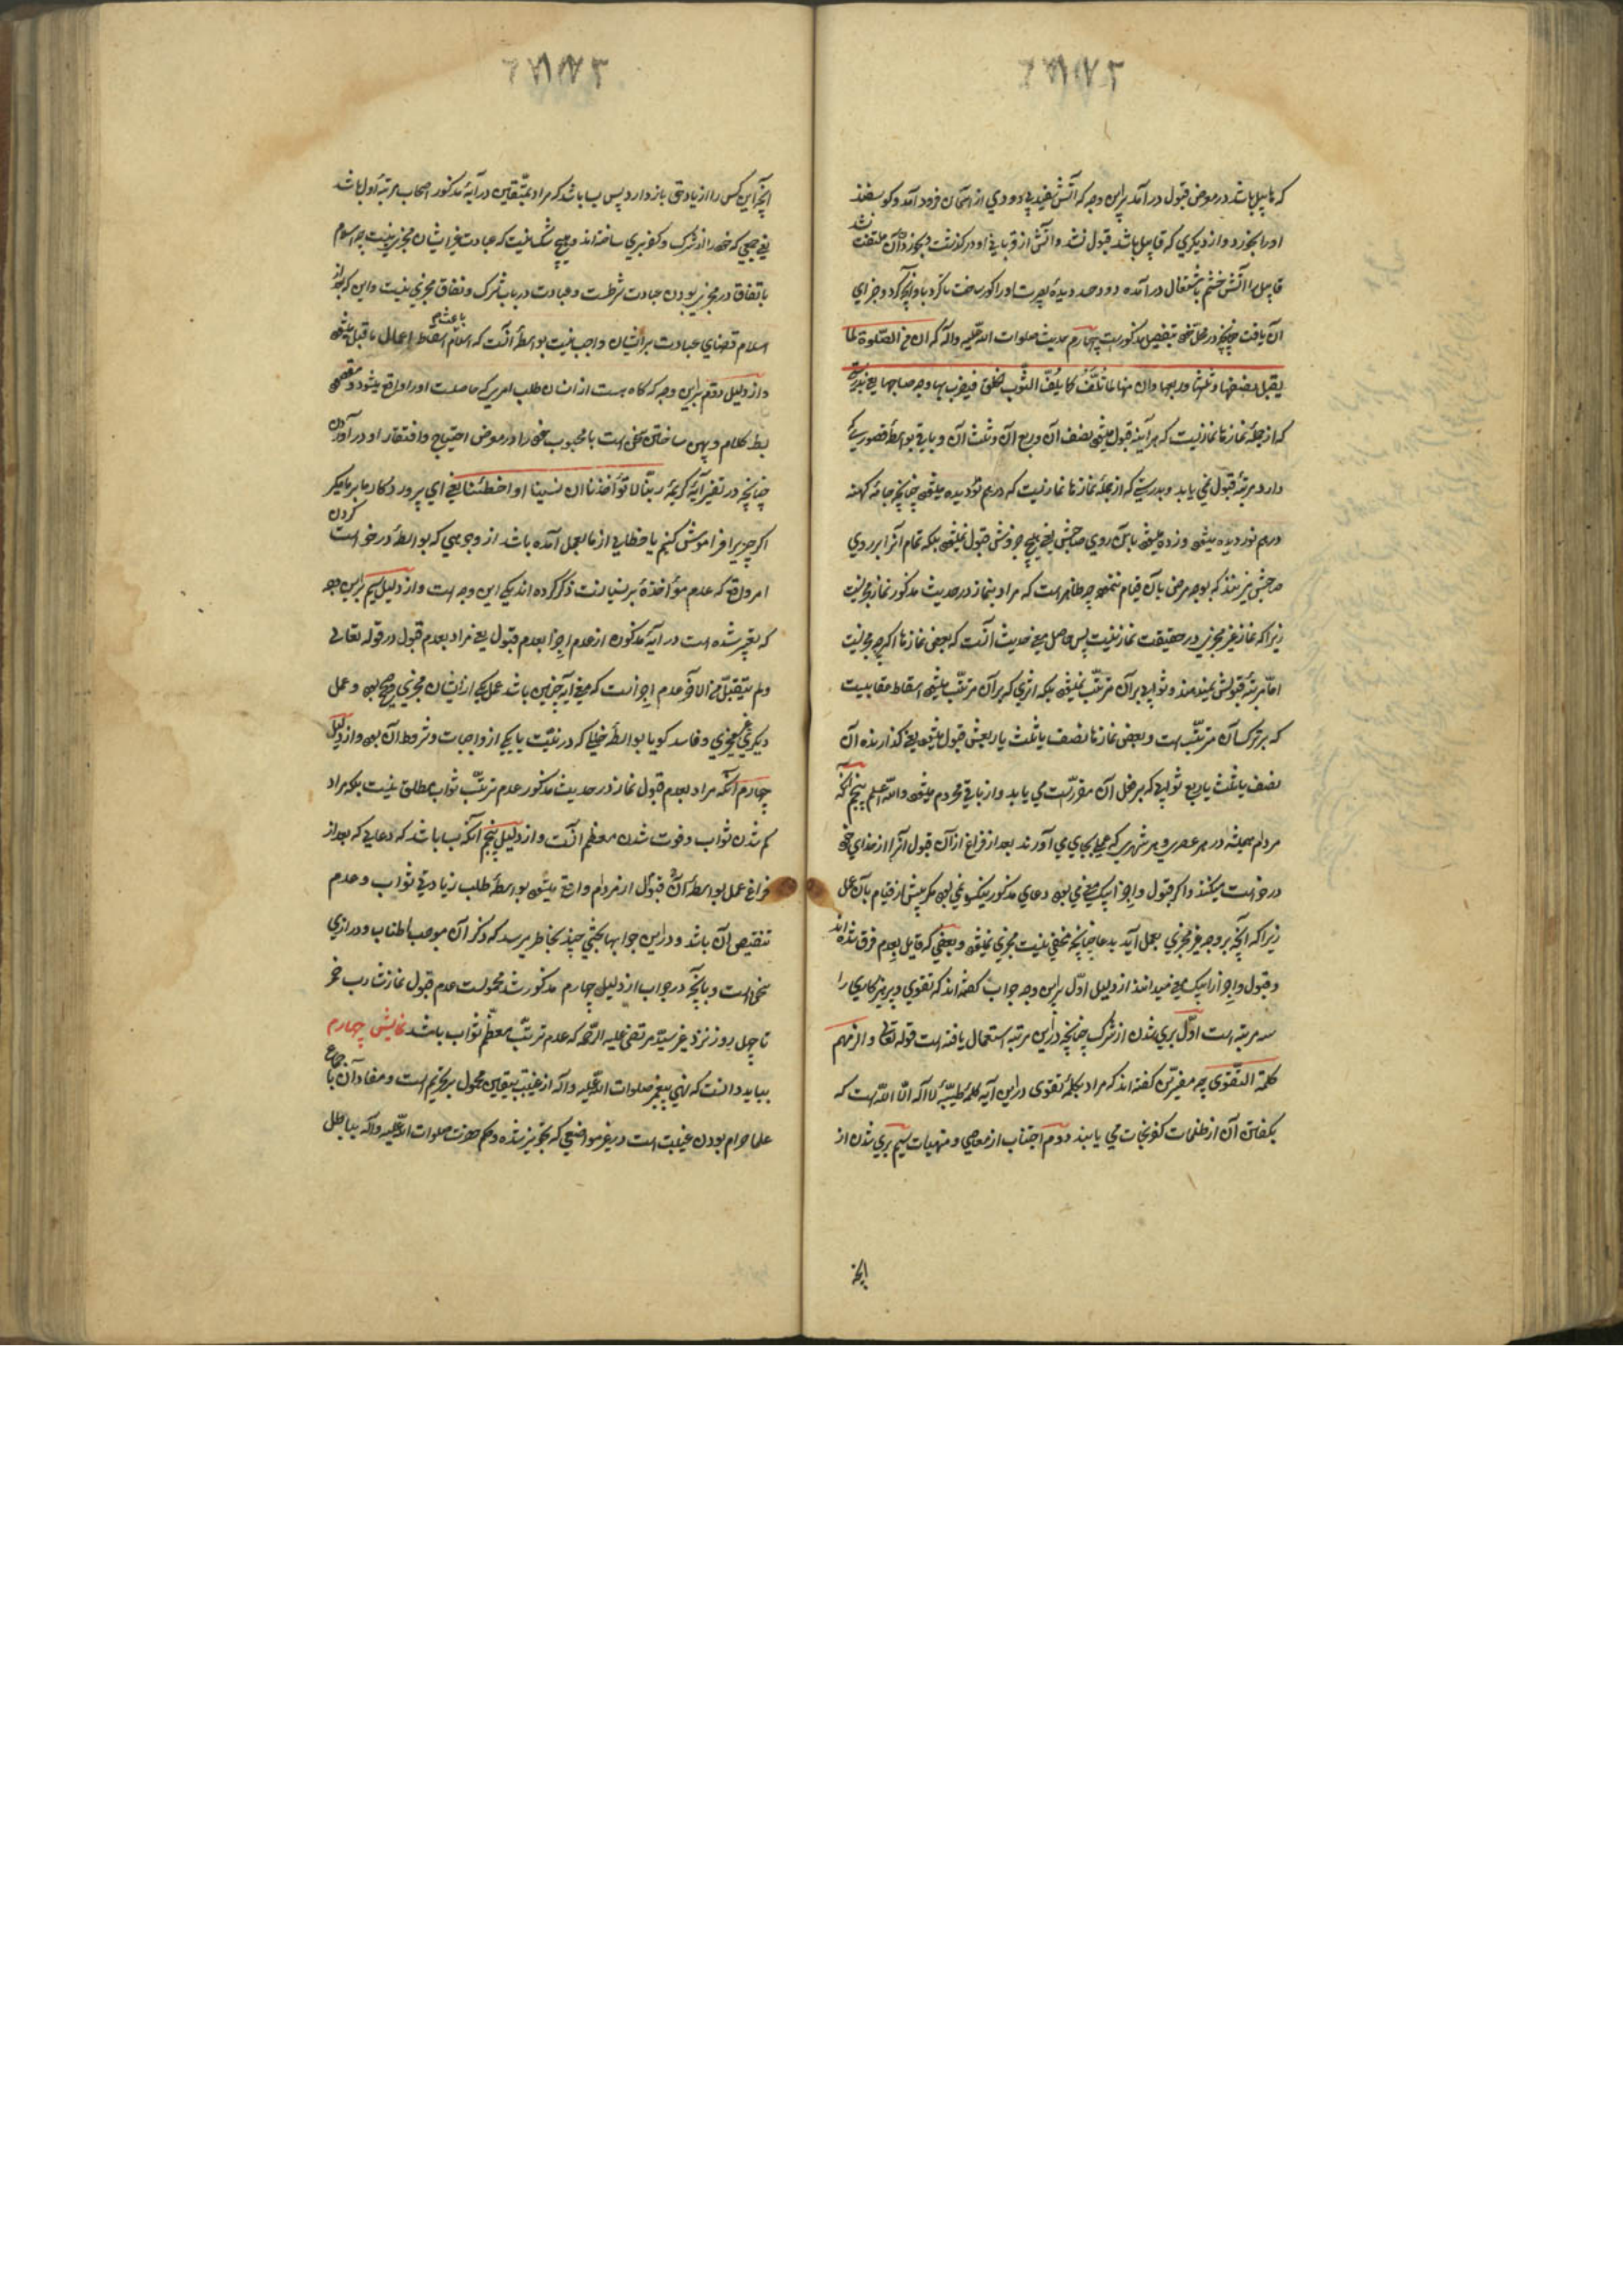 که هابیل باشد در موضع قبول درآمد براین وجه که آتش سفید بی دودی از آسمان فرود آمد و کوسفند
اورا بخورد و از دیکری که قابیل باشد قبول نشد و آتش از قربانی او در کذشت و بخوردن آن ملتفت نشد
قابیل را آتش خشم باشتعال درآمده دود حسد دیدهٔ بصیرت اورا کور ساخت تا کرد با او آنچه کرد و جزای
آن یافت چنانچه در محل خود بتفصیل مذکورست چهارم حدیث صلوات الله علیه وآله که ان من الصلوة لما
یقبل نصفها وثلثها وربعها وان منها لما تُلَفُّ کما یُلَفّ الثوب الخلق فیضرب بها وجه صاحبها یعنی بدرستی
که از جملهٔ نمازها نمازیست که هرآینه قبول میشود نصف آن و ربع آن و ثلث آن و باقی بواسطهٔ قصوری که
دارد مرتبهٔ قبول نمی یابد و بدرستی که از جملهٔ نمازها نمازیست که درهم نوردیده میشود چنانچه جامهٔ کهنه
درهم نوردیده میشود و زده میشود بآن روی صاحبش یعنی هیچ جزوش قبول نمیشود بلکه تمام آنرا بر روی
صاحبش میزنند که بوجه مرضی بآن قیام ننموده چه ظاهر است که مراد بنماز در حدیث مذکور نماز مجزیست
زیرا که نماز غیر مجزی در حقیقت نماز نیست پس حاصل معنی حدیث آنست که بعضی نمازها اکرچه مجزیست
امّا مرتبهٔ قبولش نمیدهند و ثوابی برآن مترتّب نمیشود بلکه اثری که برآن مترتّب میشود اسقاط عقابیست
که بر ترک آن مترتّب است و بعضی نمازها نصف یا ثلث یا ربعش قبول میشود یعنی کذارنده آن
نصف یا ثلث یا ربع ثوابی که بر فعل آن مقررّست می یابد و از باقی محروم میشود والله اعلم پنجم آنکه
مردم همیشه در هر عصری و هر شهری که عملی بجای می آورند بعد از فراغ از آن قبول آنرا از خدای خود
درخواست میکنند و اکر قبول و اجزا بیک معنی بود دعای مذکور نیکو نمی بود مکر پیش از قیام بآن عمل
زیرا که آنچه بر وجه غیر مجزی بعمل آید بدعا چنانچه مخفی نیست مجزی نمیشود و بعضی که قایل بعدم فرق شده اند
و قبول و اجزا را بیک معنی میدانند از دلیل اوّل براین وجه جواب کفته اند که تقوی و پرهیزکاری را
سه مرتبه است اوّل بری شدن از شرک چنانچه دراین مرتبه استعمال یافته است قوله تعالی والزمهم
کلمة التّقوی چه مفسّرین کفته اند که مراد بکلمهٔ تقوی دراین آیه کلمهٔ طیّبهٔ لا اله الّا الله است که
بکفتن آن از ظلمات کفر نجات می یابند دوم اجتناب از معاصی و منهیات سیم بری شدن از
آنچه
آنچه این کس را از یاد حق باز دارد پس بسا باشد که مراد بمتّقین در آیهٔ مذکور اصحاب مرتبهٔ اول باشد
یعنی جمعی که خود را از شرک و کفر بری ساخته اند و هیچ شک نیست که عبادت غیر ایشان مجزی نیست چه اسلام
باتفاق در مجزی بودن عبادت شرطست و عبادت در باب شرک و نفاق مجزی نیست و این که بعد از
اسلام قضای عبادت بر ایشان واجب نیست بواسطهٔ آنست که اسلام باعث اسقاط اعمال ماقبل میشود
و از دلیل دوّم براین وجه که کاه هست از انسان طلب امری که حاصلست اورا واقع میشود و مقصود
بسط کلام و پهن ساختن سخن است با محبوب خود را در معرض احتیاج و افتقار او درآوردن
چنانچه در تفسیر آیهٔ کریمهٔ ربّنا لا تؤاخذنا ان نسینا او اخطأنا یعنی ای پروردکار ما بر ما مکیر
اکر چیزیرا فراموش کنیم یا خطایی از ما بعمل آمده باشد از وجوهی که بواسطهٔ درخواست کردن
امر واقع که عدم مؤاخذهٔ بر نسیانست ذکر کرده اند یکی این وجه است و از دلیل سیم براین وجه
که تعبیر شده است در آیهٔ مذکوره از عدم اجزا بعدم قبول یعنی مراد بعدم قبول در قوله تعالی
ولم یتقبّل من الاخر عدم اجزاست که معنی آیه چنین باشد عمل یکی از ایشان مجزی و صحیح بود و عمل
دیکری غیر مجزی و فاسد کویا بواسطهٔ خللی که در نیّت یا یکی از واجبات و شروط آن بود و از دلیل
چهارم آنکه مراد بعدم قبول نماز در حدیث مذکور عدم ترتّب ثواب مطلق نیست بلکه مراد
کم شدن ثواب و فوت شدن معظم آنست و از دلیل پنجم آنکه بسا باشد که دعایی که بعد از
فراغ عمل بواسطهٔ قبول آن از مردم واقع میشود بواسطهٔ طلب زیادتی ثواب و عدم
تنقیص آن باشد و دراین جوابها بحثی چند بخاطر میرسد که ذکر آن موجب اطناب و درازی
سخن است و بآنچه در جواب از دلیل چهارم مذکور شد محمولست عدم قبول نماز شارب خمر
تا چهل روز نزد غیر سیّد مرتضی علیه الرّحمه که عدم ترتّب معظّم ثواب باشد نمایش چهارم
بباید دانست که نهی پیغمبر صلوات الله علیه وآله از غیبت بیقین محمول بر تحریم است و مفاد آن باجماع
علما حرام بودن غیبت است در غیر مواضعی که تجویز شده و حکم حضرت صلوات الله علیه وآله بباطل